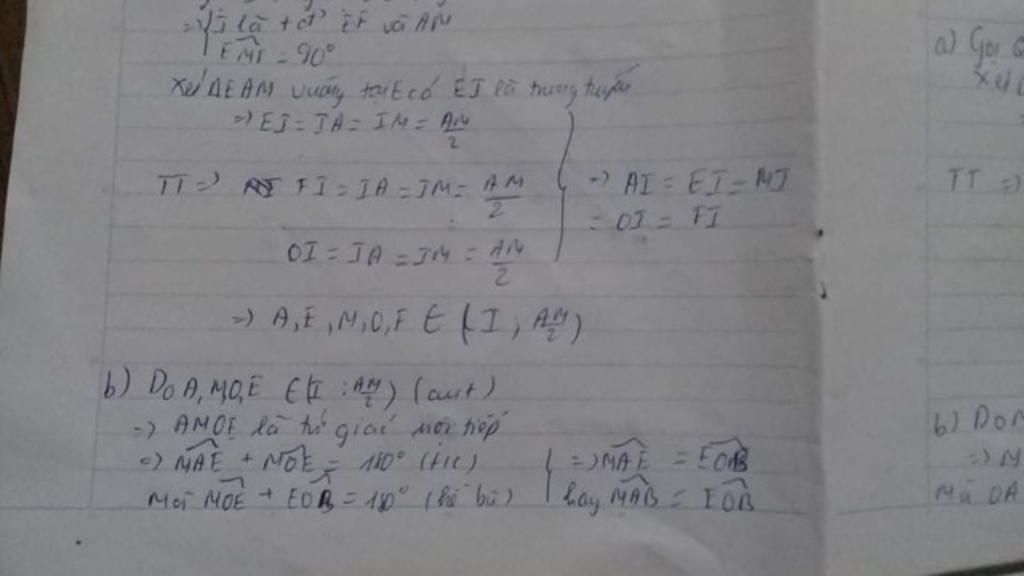 => I là tđ EF và AM
EMF = 90°
Xét ΔEAM vuông tại E có EI là trung tuyến
=> EI = IA = IM = AM/2
TT => FI = IA = IM = AM/2
=> AI = EI = MI
= OI = FI
OI = IA = IM = AM/2
=> A, E, M, O, F ∈ (I ; AM/2)
b) Do A, M, O, E ∈ (I ; AM/2) (cmt)
=> AMOE là tứ giác nội tiếp
=> MAE + MOE = 180° (t/c)
=> MAE = EOB
Mà MOE + EOB = 180° (kề bù)
hay MAB = EOB
a) Gọi
Xét
TT =>
b) Do M
=> M
Mà OA